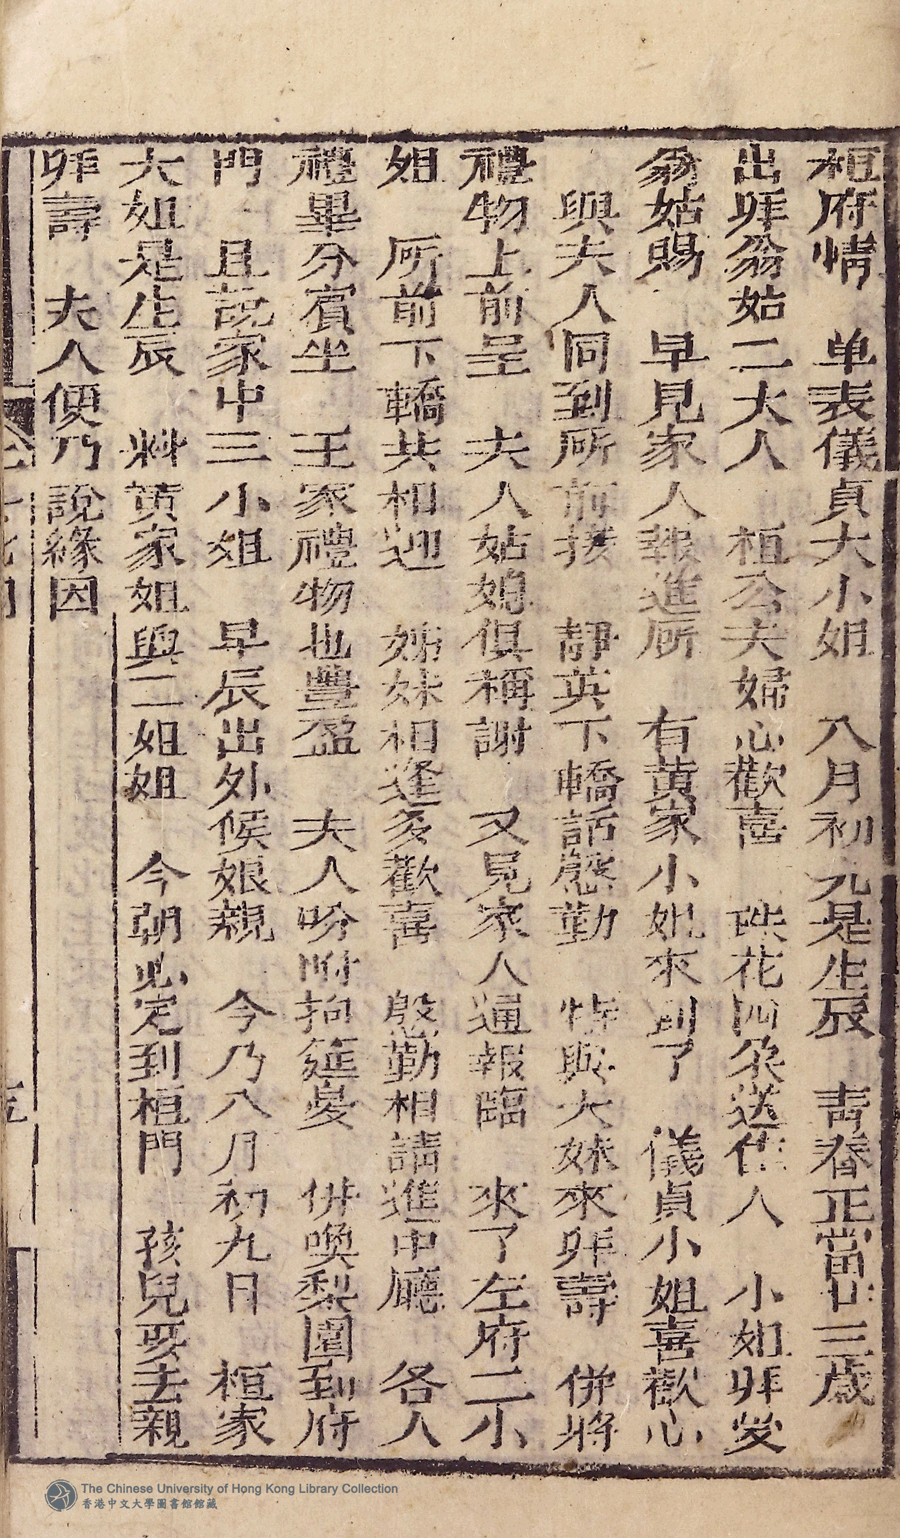 桓府情　单表儀貞大小姐　八月初九是生辰　青春正當廿三歲
出拜翁姑二大人　桓公夫婦心歡喜　珠花四朵送佳人　小姐拜受
翁姑賜　早見家人報進厛　有黄家小姐來到了　儀貞小姐喜歡心
　與夫人同到厛前接　靜英下轎話慇勤　特與大妹來拜壽　併將
禮物上前呈　夫人姑媳俱稱謝　又見家人通報臨　來了左府二小
姐　厛前下轎共相迎　姊妹相逢多歡喜　慇勤相請進中廳　各人
禮畢分賓坐　王家禮物也豊盈　夫人吩咐拘筵宴　併喚梨園到府
門　且說家中三小姐　早辰出外候娘親　今乃八月初九日　桓家
大姐是生辰　料黄家姐與二姐姐　今朝必定到桓門　孩兒要去親
拜壽　夫人便乃說緣因
五
The Chinese University of Hong Kong Library Collection
香港中文大學圖書館館藏